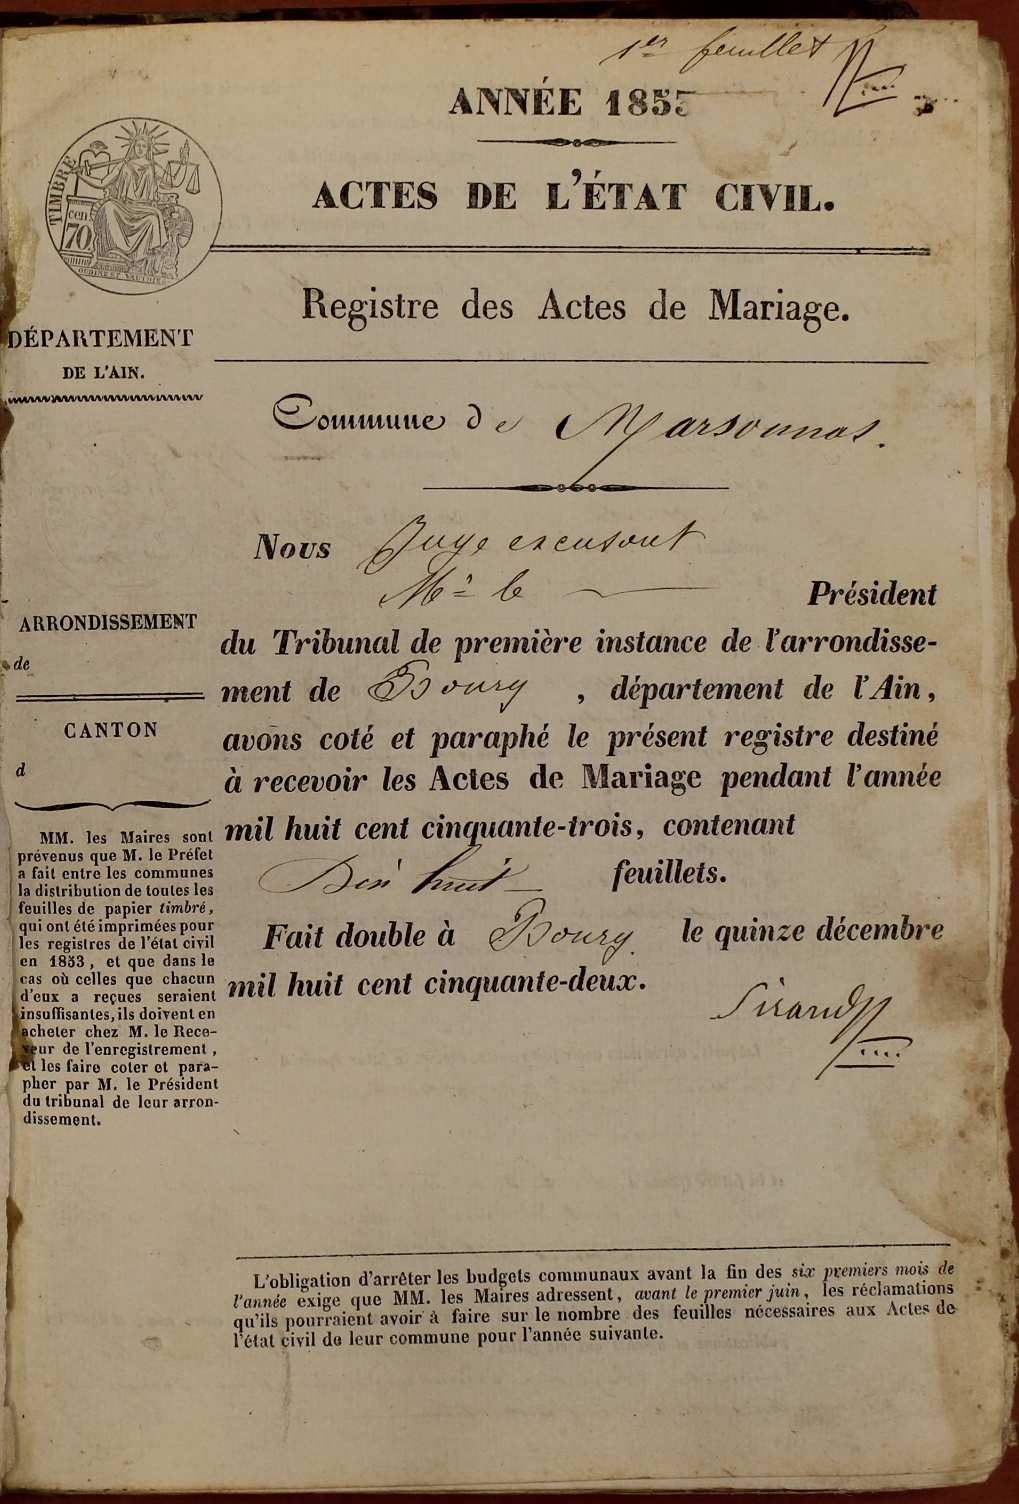 1er feuillet
ANNÉE 1853
ACTES DE L'ÉTAT CIVIL.
TIMBRE
cen
70
Registre des Actes de Mariage.
DÉPARTEMENT
DE L'AIN.
Commune de Marsonnas.
Nous Juge excusant
Mr le Président
du Tribunal de première instance de l'arrondisse-
ment de Bourg, département de l'Ain,
avons coté et paraphé le présent registre destiné
à recevoir les Actes de Mariage pendant l'année
mil huit cent cinquante-trois, contenant
Dix huit feuillets.
Fait double à Bourg. le quinze décembre
mil huit cent cinquante-deux.
Sirand
ARRONDISSEMENT
de
CANTON
d
MM. les Maires sont
prévenus que M. le Préfet
a fait entre les communes
la distribution de toutes les
feuilles de papier timbré,
qui ont été imprimées pour
les registres de l'état civil
en 1853, et que dans le
cas où celles que chacun
d'eux a reçues seraient
insuffisantes, ils doivent en
acheter chez M. le Rece-
veur de l'enregistrement,
et les faire coter et para-
pher par M. le Président
du tribunal de leur arron-
dissement.
L'obligation d'arrêter les budgets communaux avant la fin des six premiers mois de
l'année exige que MM. les Maires adressent, avant le premier juin, les réclamations
qu'ils pourraient avoir à faire sur le nombre des feuilles nécessaires aux Actes de
l'état civil de leur commune pour l'année suivante.